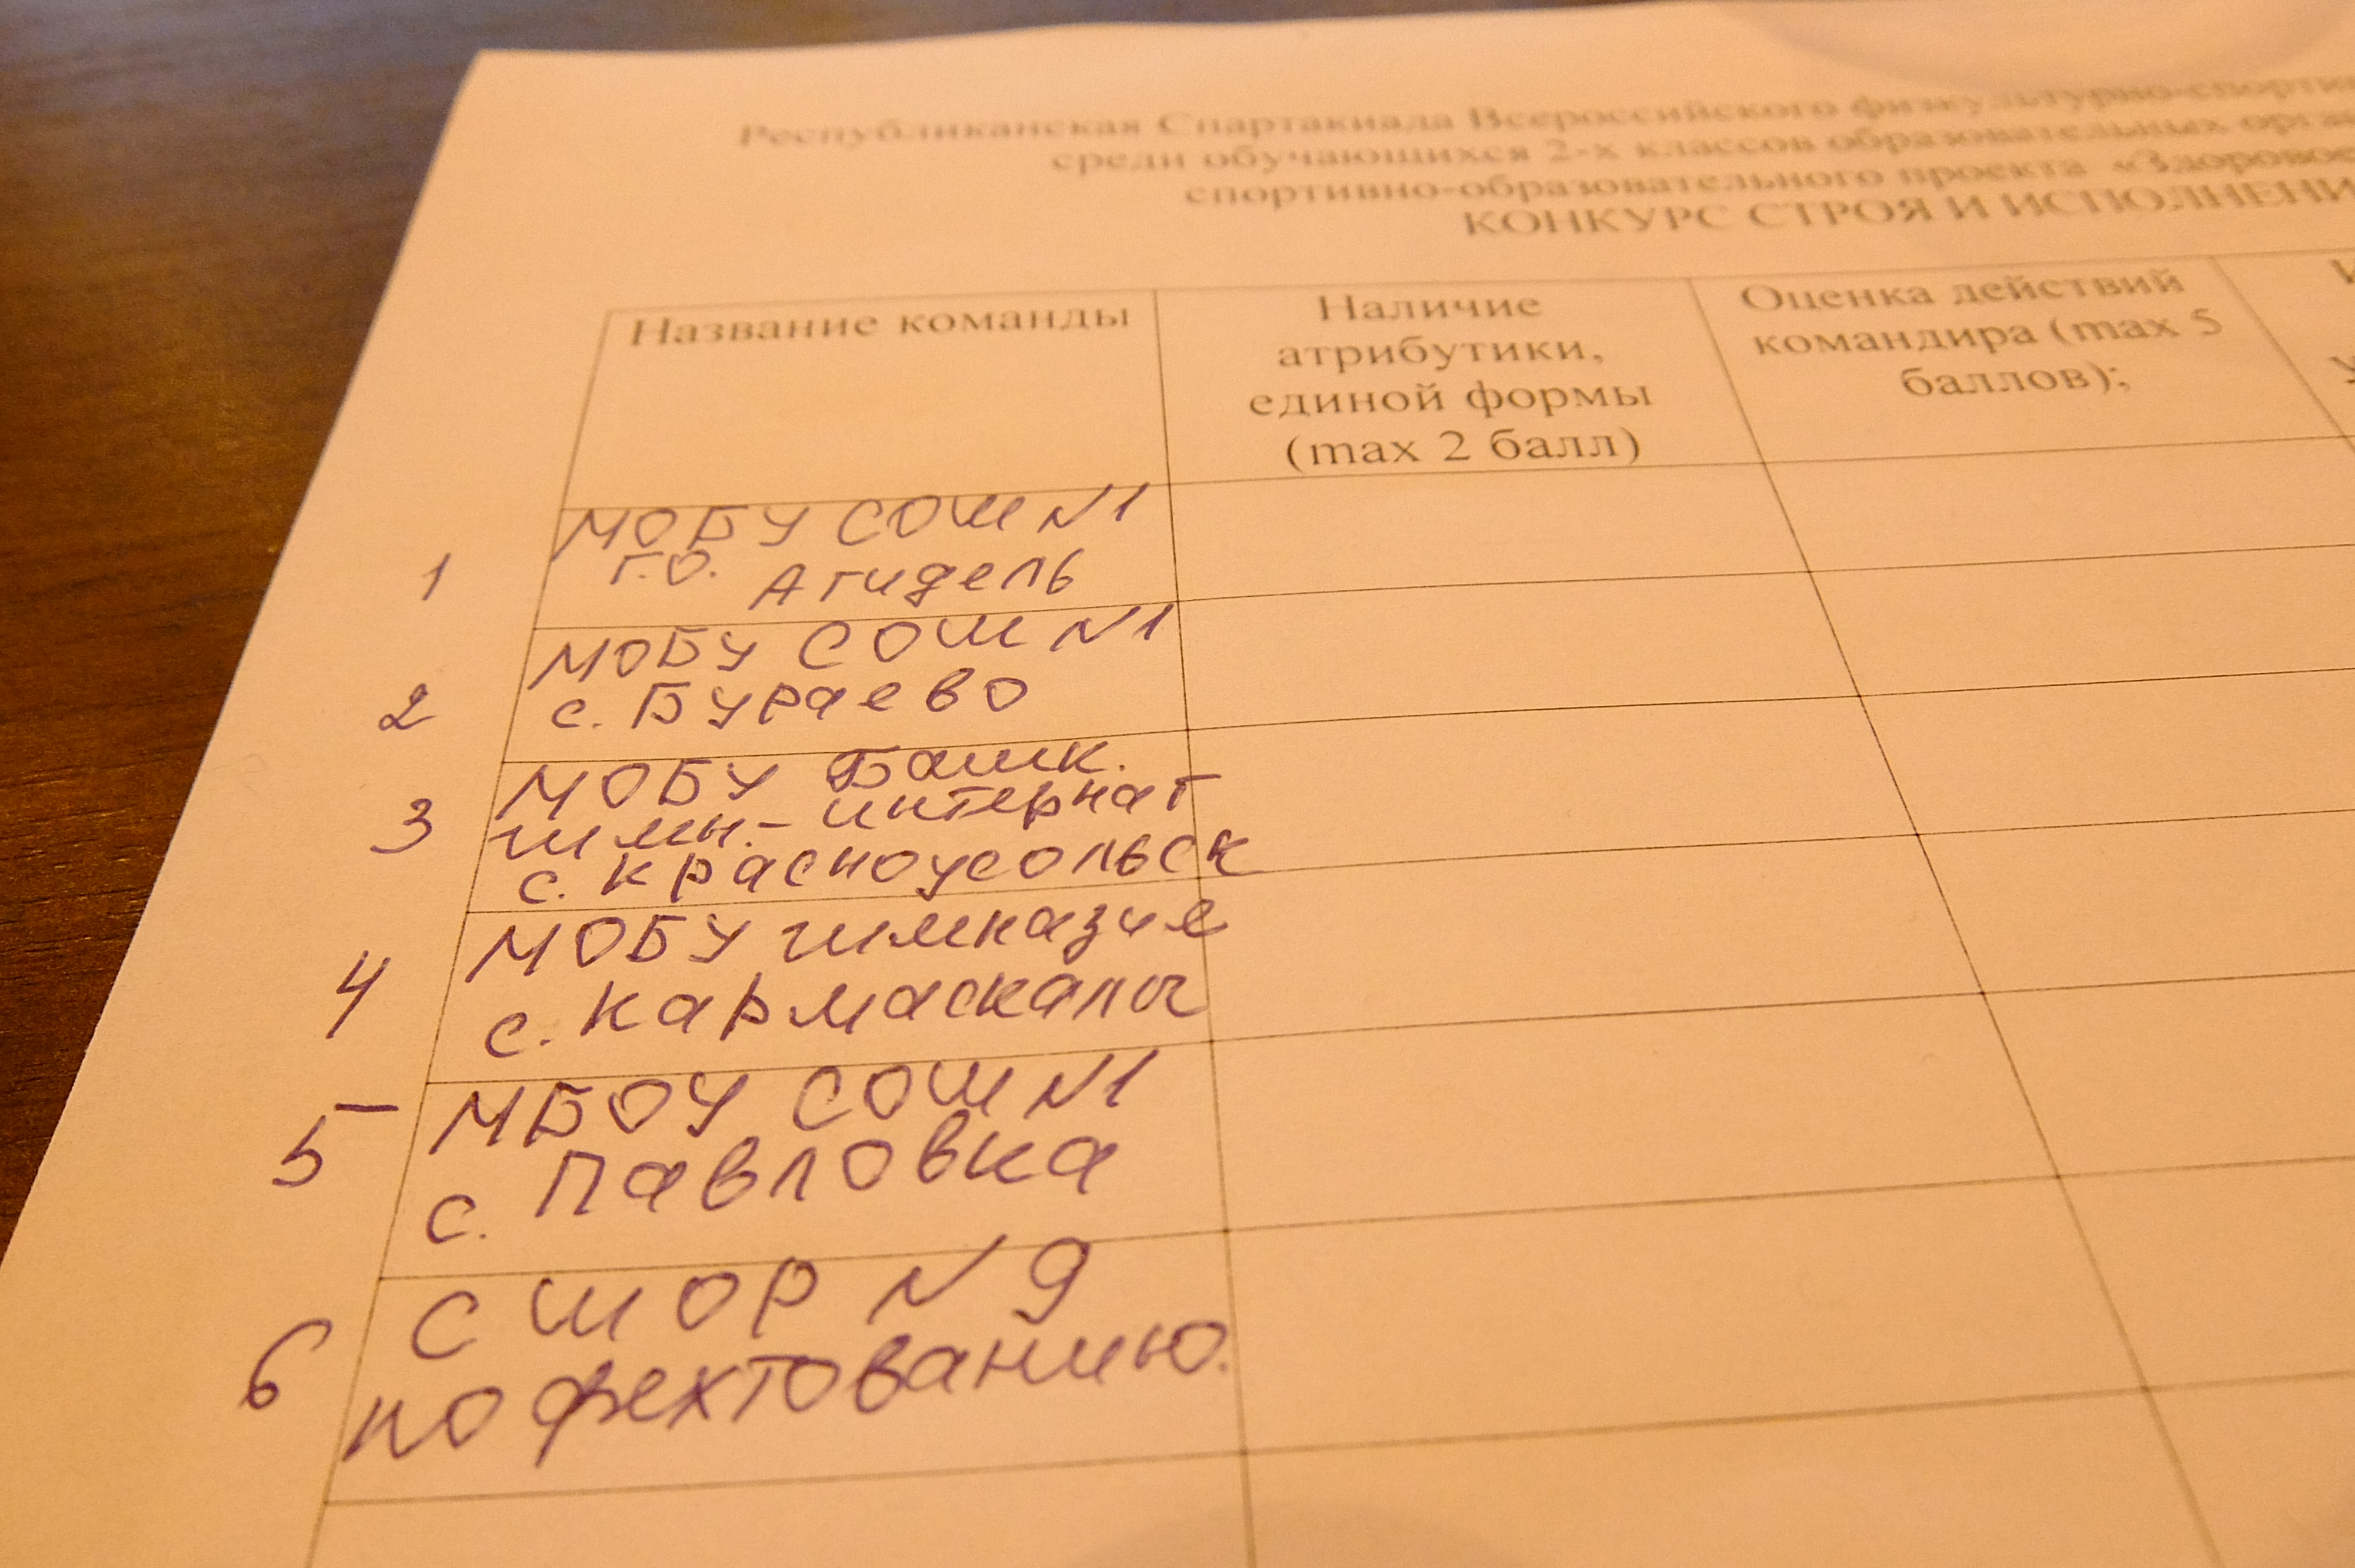 Республиканская Спартакиада Всероссийского физкультурно-спорти
среди обучающихся 2-х классов образовательных орга
спортивно-образовательного проекта «Здоровое
КОНКУРС СТРОЯ И ИСПОЛНЕНИ
Название команды
Наличие
атрибутики,
единой формы
(max 2 балл)
Оценка действий
командира (max 5
баллов);
1
МОБУ СОШ №1
Г.О. Агидель
2
МОБУ СОШ №1
с. Бураево
3
МОБУ Башк.
гимн.-интернат
с. Красноусольск
4
МОБУ гимназие
с. Кармаскалы
5
МБОУ СОШ №1
с. Павловка
6
СШОР №9
по фехтованию.